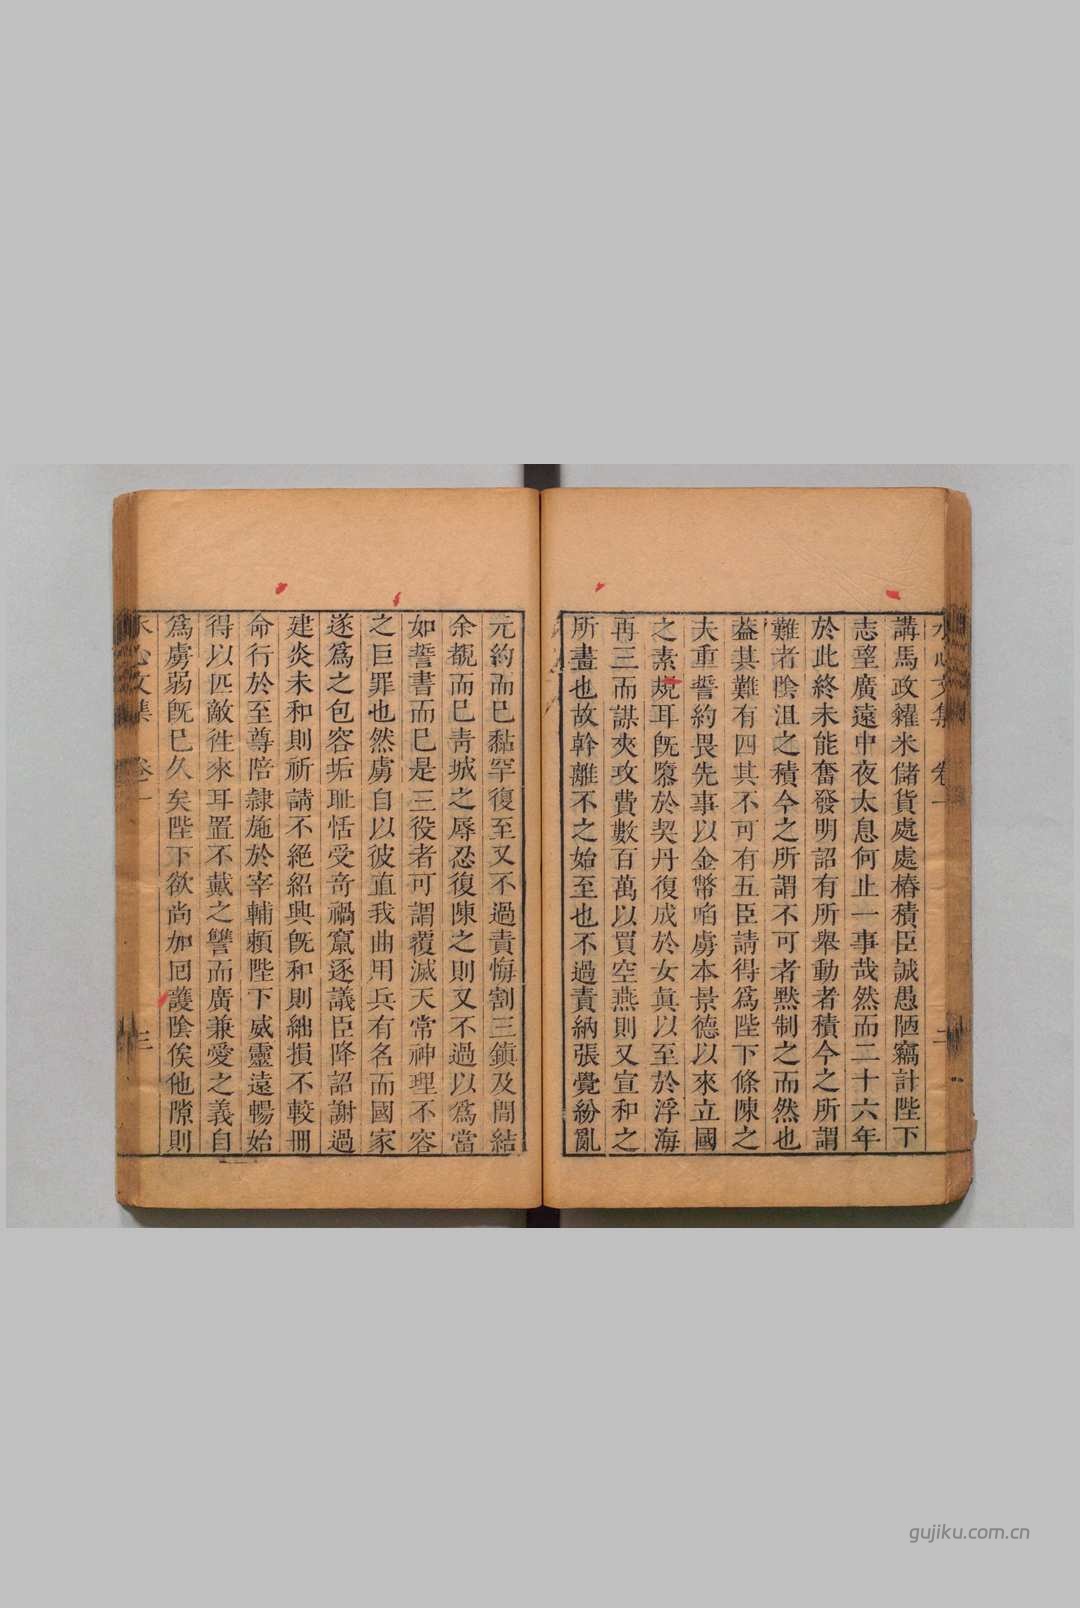 水心文集 卷一 二
講馬政糴米儲貨處處樁積臣誠愚陋竊計陛下
志望廣遠中夜太息何止一事哉然而二十六年
於此終未能奮發明詔有所舉動者積今之所謂
難者陰沮之積今之所謂不可者默制之而然也
葢其難有四其不可有五臣請得爲陛下條陳之
夫重誓約畏先事以金幣啗虜本景德以來立國
之素規耳旣隳於契丹復成於女眞以至於浮海
再三而謀夾攻費數百萬以買空燕則又宣和之
所畫也故幹離不之始至也不過責納張覺紛亂
元約而巳黏罕復至又不過責悔割三鎮及間結
余覩而巳靑城之辱忍復陳之則又不過以爲當
如誓書而巳是三役者可謂覆滅天常神理不容
之巨罪也然虜自以彼直我曲用兵有名而國家
遂爲之包容垢耻恬受竒禍竄逐議臣降詔謝過
建炎未和則祈請不絕紹興旣和則絀損不較冊
命行於至尊陪隷施於宰輔賴陛下威靈遠暢始
得以匹敵徃來耳置不戴之讐而廣兼愛之義自
爲虜弱旣巳久矣陛下欲尚加回護陰俟他隙則
水心文集 卷一 三
gujiku.com.cn